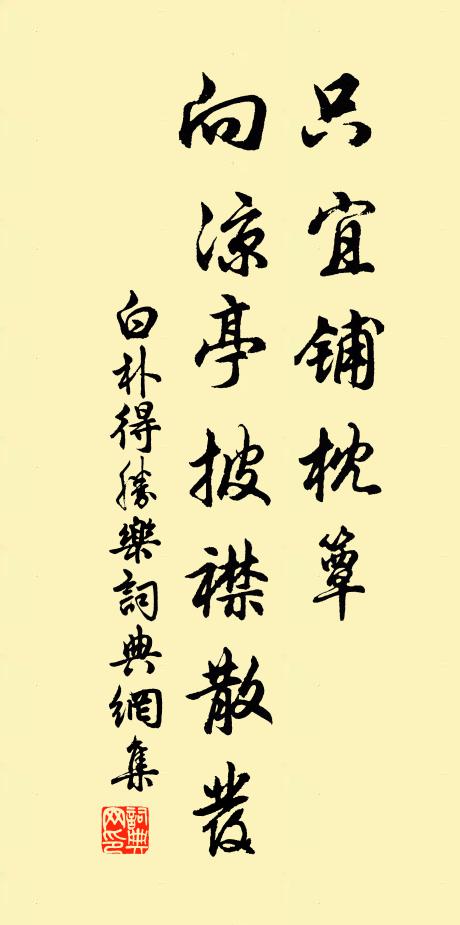 只宜铺枕簟
向凉亭披襟散发
白朴得勝樂詞典網集
詞典网印